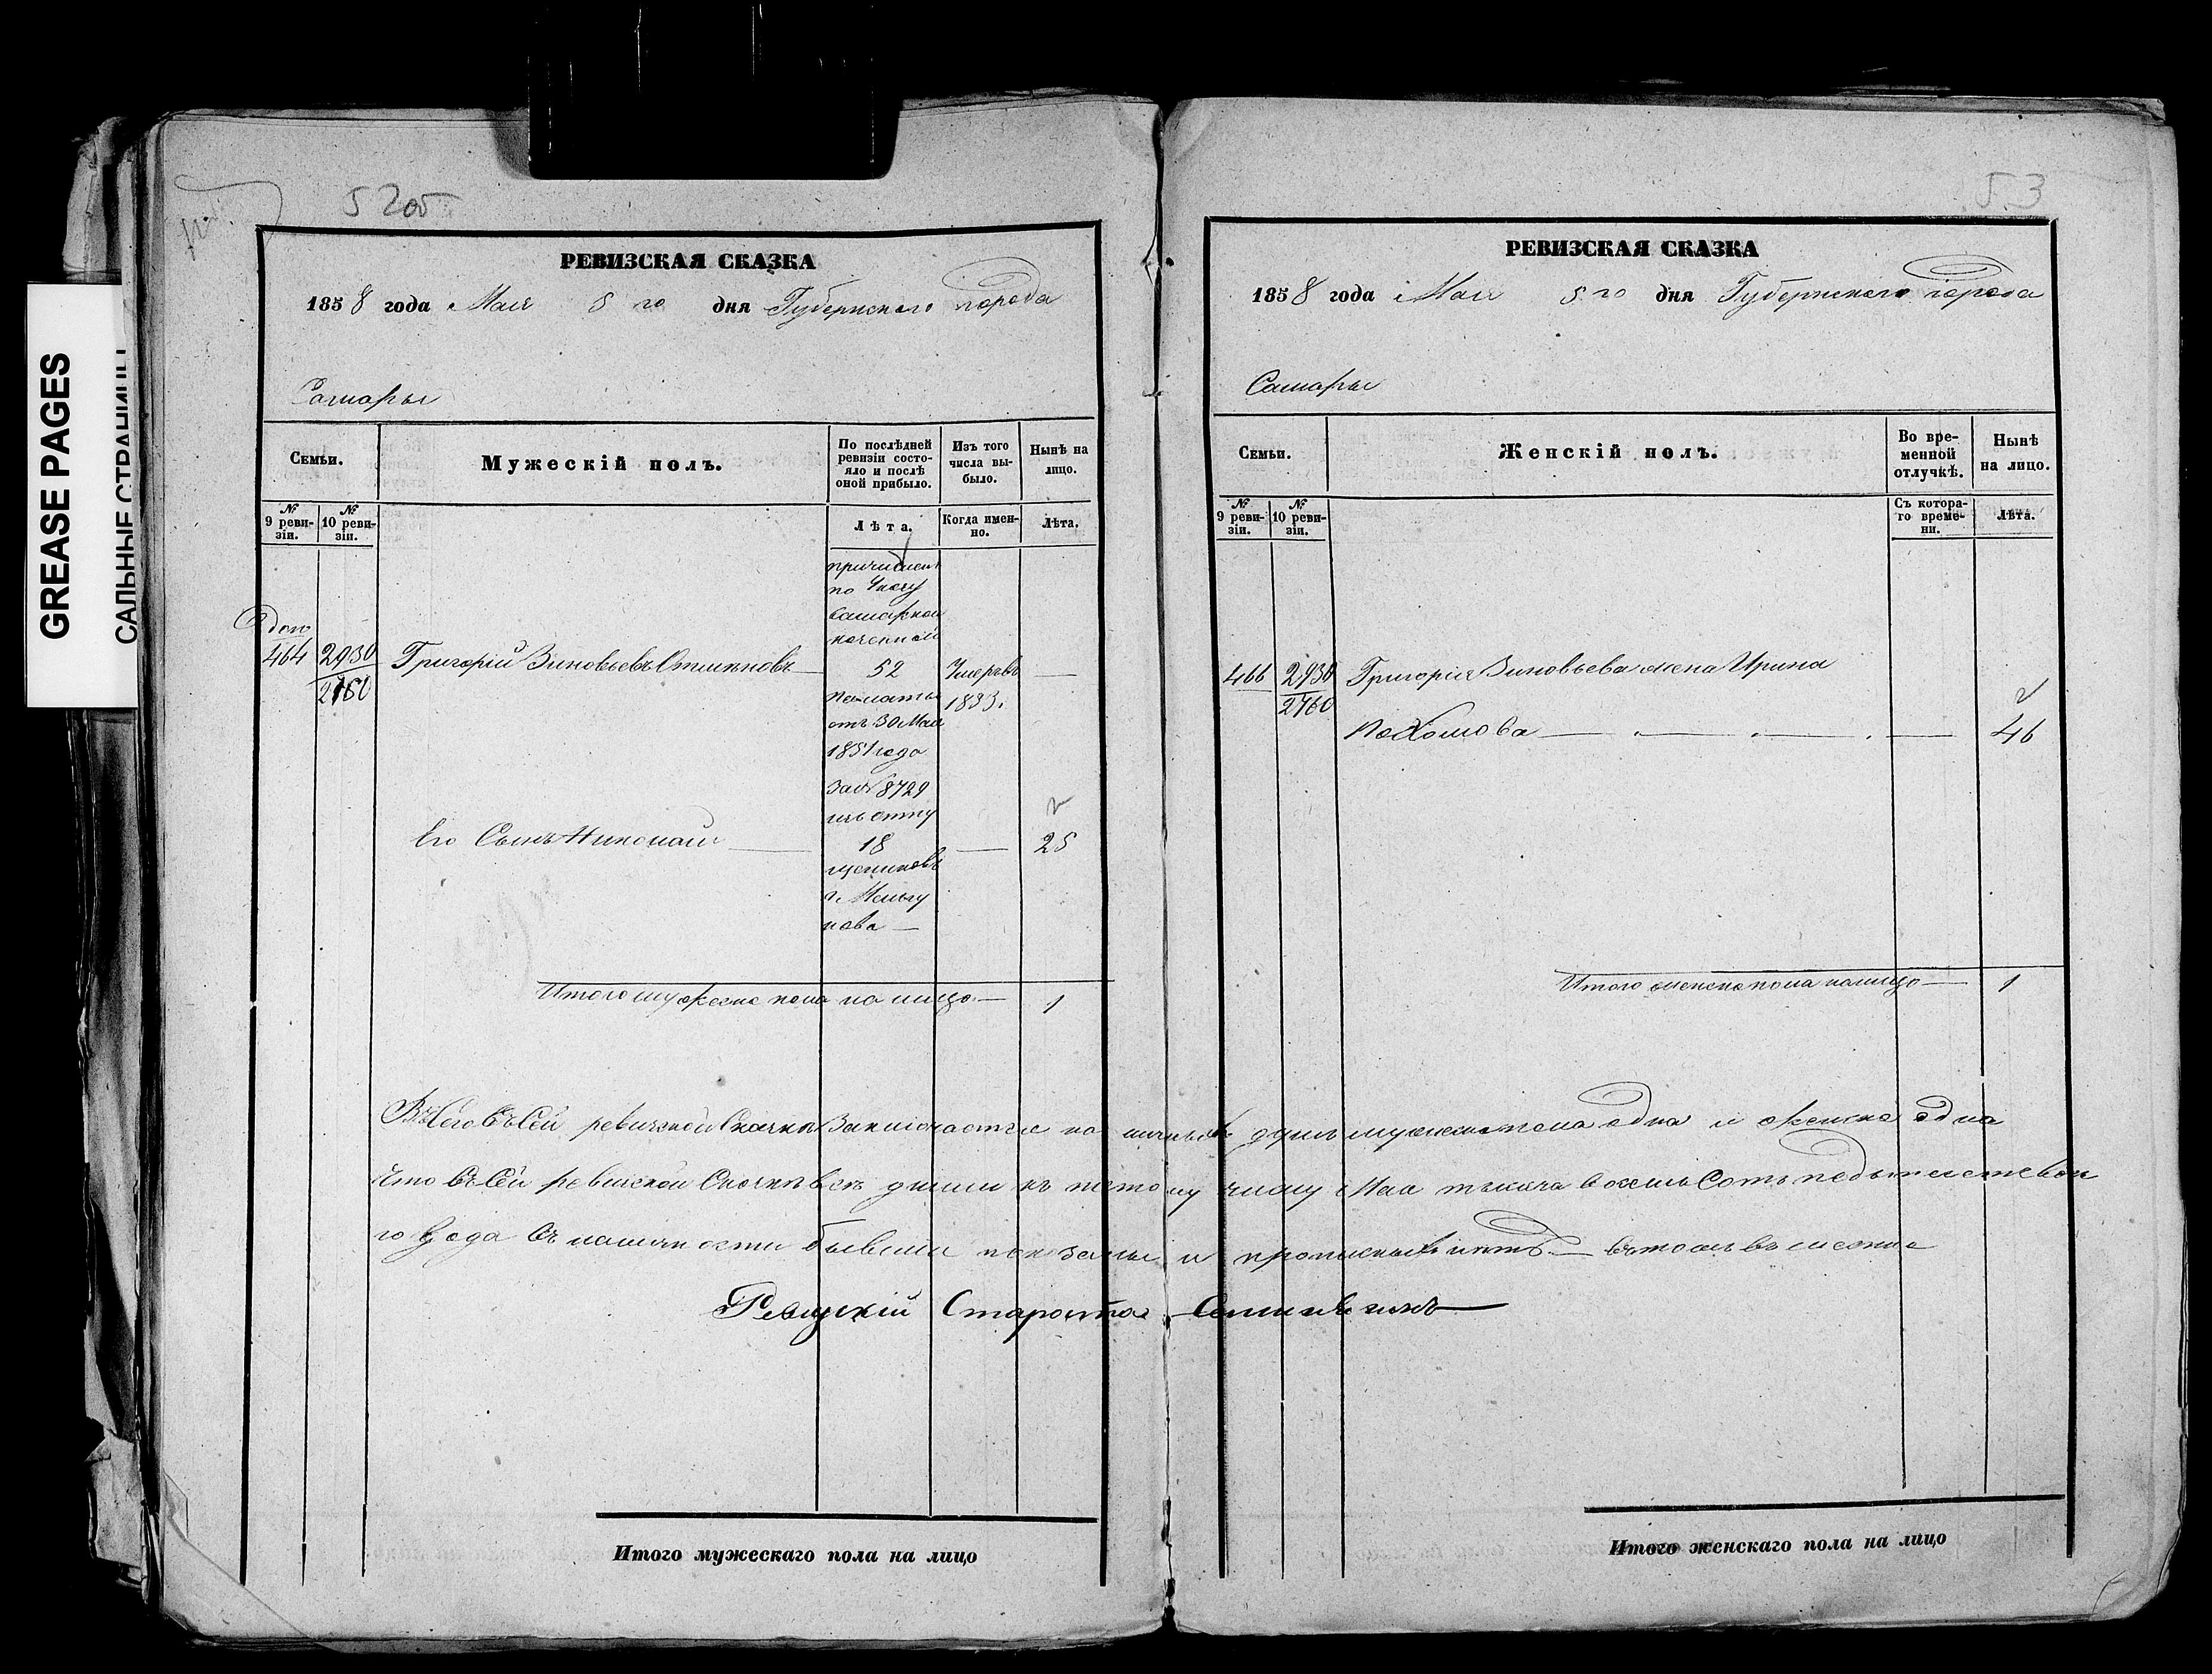 GREASE PAGES
САЛЬНЫЕ СТРАНИЦЫ
52об
РЕВИЗСКАЯ СКАЗКА
1858 года Мая 5 го дня Губернского города
Самары
Семьи.
Мужескій полъ.
По послѣдней ревизіи состояло и послѣ оной прибыло.
Изъ того числа выбыло.
Нынѣ на лицо.
№ 9 ревизіи.
№ 10 ревизіи.
Лѣта.
Когда именно.
Лѣта.
причисленъ
по Указу
Самарской
казенной
464 2930 Григорій Зиновьевъ 52 Умеръ въ —
2760
палаты 1853.
отъ 30 Мая
1851 года
за № 8729
изъ отпу
Его Сынъ Николай — 18 — 25
щениковъ
г. Мельгу
нова —
Итого мужеска пола на лицо — 1
53
РЕВИЗСКАЯ СКАЗКА
1858 года Мая 5 го дня Губернского города
Самары
Семьи.
Женскій полъ.
Во временной отлучкѣ.
Нынѣ на лицо.
№ 9 ревизіи.
№ 10 ревизіи.
Съ котораго времени.
Лѣта.
466 2930 Григорія Зиновьева жена Ирина
2760
Пахомова — 46
Итого женска пола налицо — 1
Всего въ сей ревизской Сказкѣ Заключается на личныхъ душъ мужеска пола одна и женска одна
Что въ сей ревизской Сказкѣ всѣ души къ пятому числу Мая тысяча восемь Сотъ
го года въ наличности бывши показаны и прописныхъ нѣтъ — въ томъ
Староста
Итого мужескаго пола на лицо
Итого женскаго пола на лицо